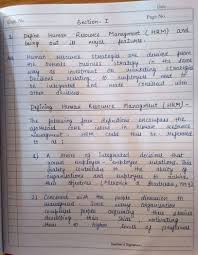 Date
Page No.
Section - I
1. Define Human Resource Management (HRM) and
bring out its major features.
Human Resource strategies are derived from
the business strategy in the same
way as investment or marketing strategies.
Decisions relating to employees need to
be integrated and made consistent with
other divisions.
Defining Human Resource Management (HRM) -
The following four definitions encompass the
core issues in human resource
management. HRM could thus be referred
to as :
1) A series of integrated decisions that
employee relationships. This
quality contributes to the ability of
organisations and employees to achieve
their objectives
2) Concerned with the people dimension in
management. Since every organisation
people acquiring their services
developing their skills motivating
them to higher levels of